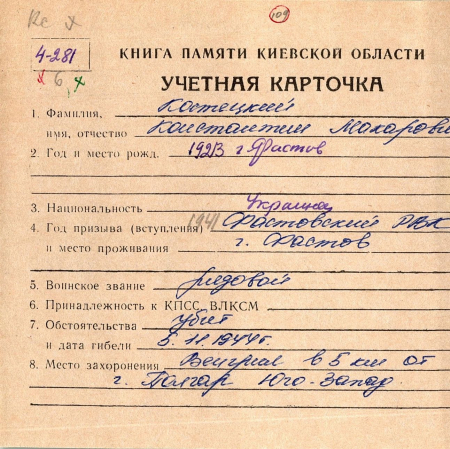 109
4-281
6,
КНИГА ПАМЯТИ КИЕВСКОЙ ОБЛАСТИ
УЧЕТНАЯ КАРТОЧКА
1. Фамилия, Костецкий
имя, отчество Константин Макарови
2. Год и место рожд. 1923 г. Фастов
3. Национальность Украинец
4. Год призыва (вступления) 1941 Фастовский РВК
и место проживания г. Фастов
5. Воинское звание рядовой
6. Принадлежность к КПСС, ВЛКСМ
7. Обстоятельства убит
и дата гибели 5.11.1944г.
8. Место захоронения Венгрия в 5 км от
г. Полгар Юго-Запад.